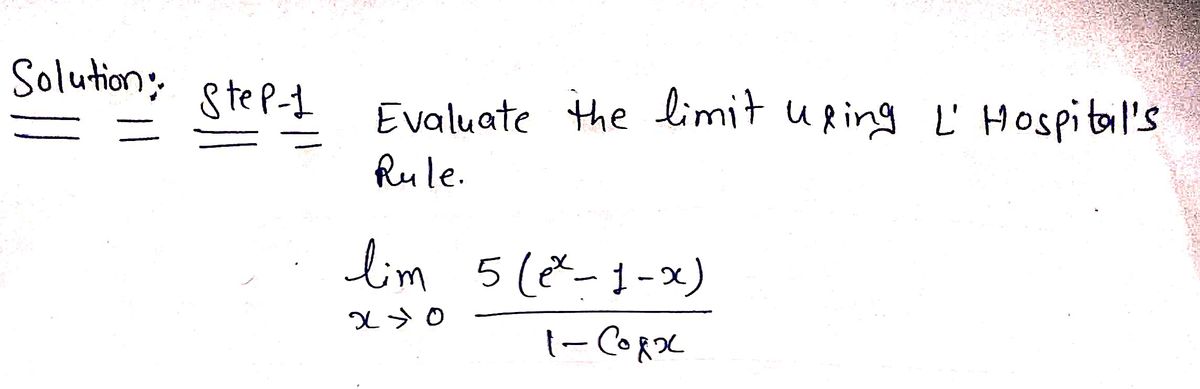 Solution:
Step-1 Evaluate the limit using L' Hospital's
Rule.
lim 5 (e^x - 1 - x)
x → 0
1 - Cos x